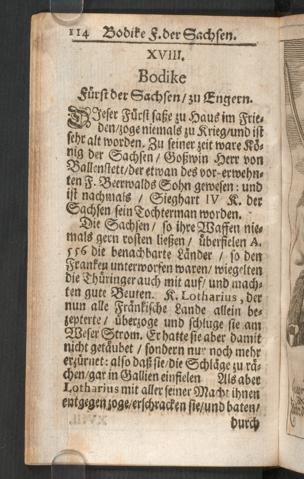 114 Bodike F. der Sachsen.
XVIII.
Bodike
Fürst der Sachsen / zu Engern.
DIeser Fürst saße zu Haus im Frie-
den/zoge niemals zu Krieg/und ist
sehr alt worden. Zu seiner zeit ware Kö-
nig der Sachsen / Goßwin Herr von
Ballenstett/ der etwan des vor-erwehn-
ten F. Beerwalds Sohn gewesen: und
ist nachmals / Sieghart IV K. der
Sachsen sein Tochterman worden.
Die Sachsen / so ihre Waffen nie-
mals gern rosten ließen / überfielen A.
556 die benachbarte Länder / so den
Franken unterworfen waren/ wiegelten
die Thüringer auch mit auf/ und mach-
ten gute Beuten. K. Lotharius, der
nun alle Fränkische Lande allein be-
zepterte / überzoge und schluge sie am
Weser Strom. Er hatte sie aber damit
nicht getäubet / sondern nur noch mehr
erzürnet: also daß sie/ die Schläge zu rä-
chen/ gar in Gallien einfielen Als aber
Lotharius mit aller seiner Macht ihnen
entgegen zoge/ erschracken sie/ und baten/
durch